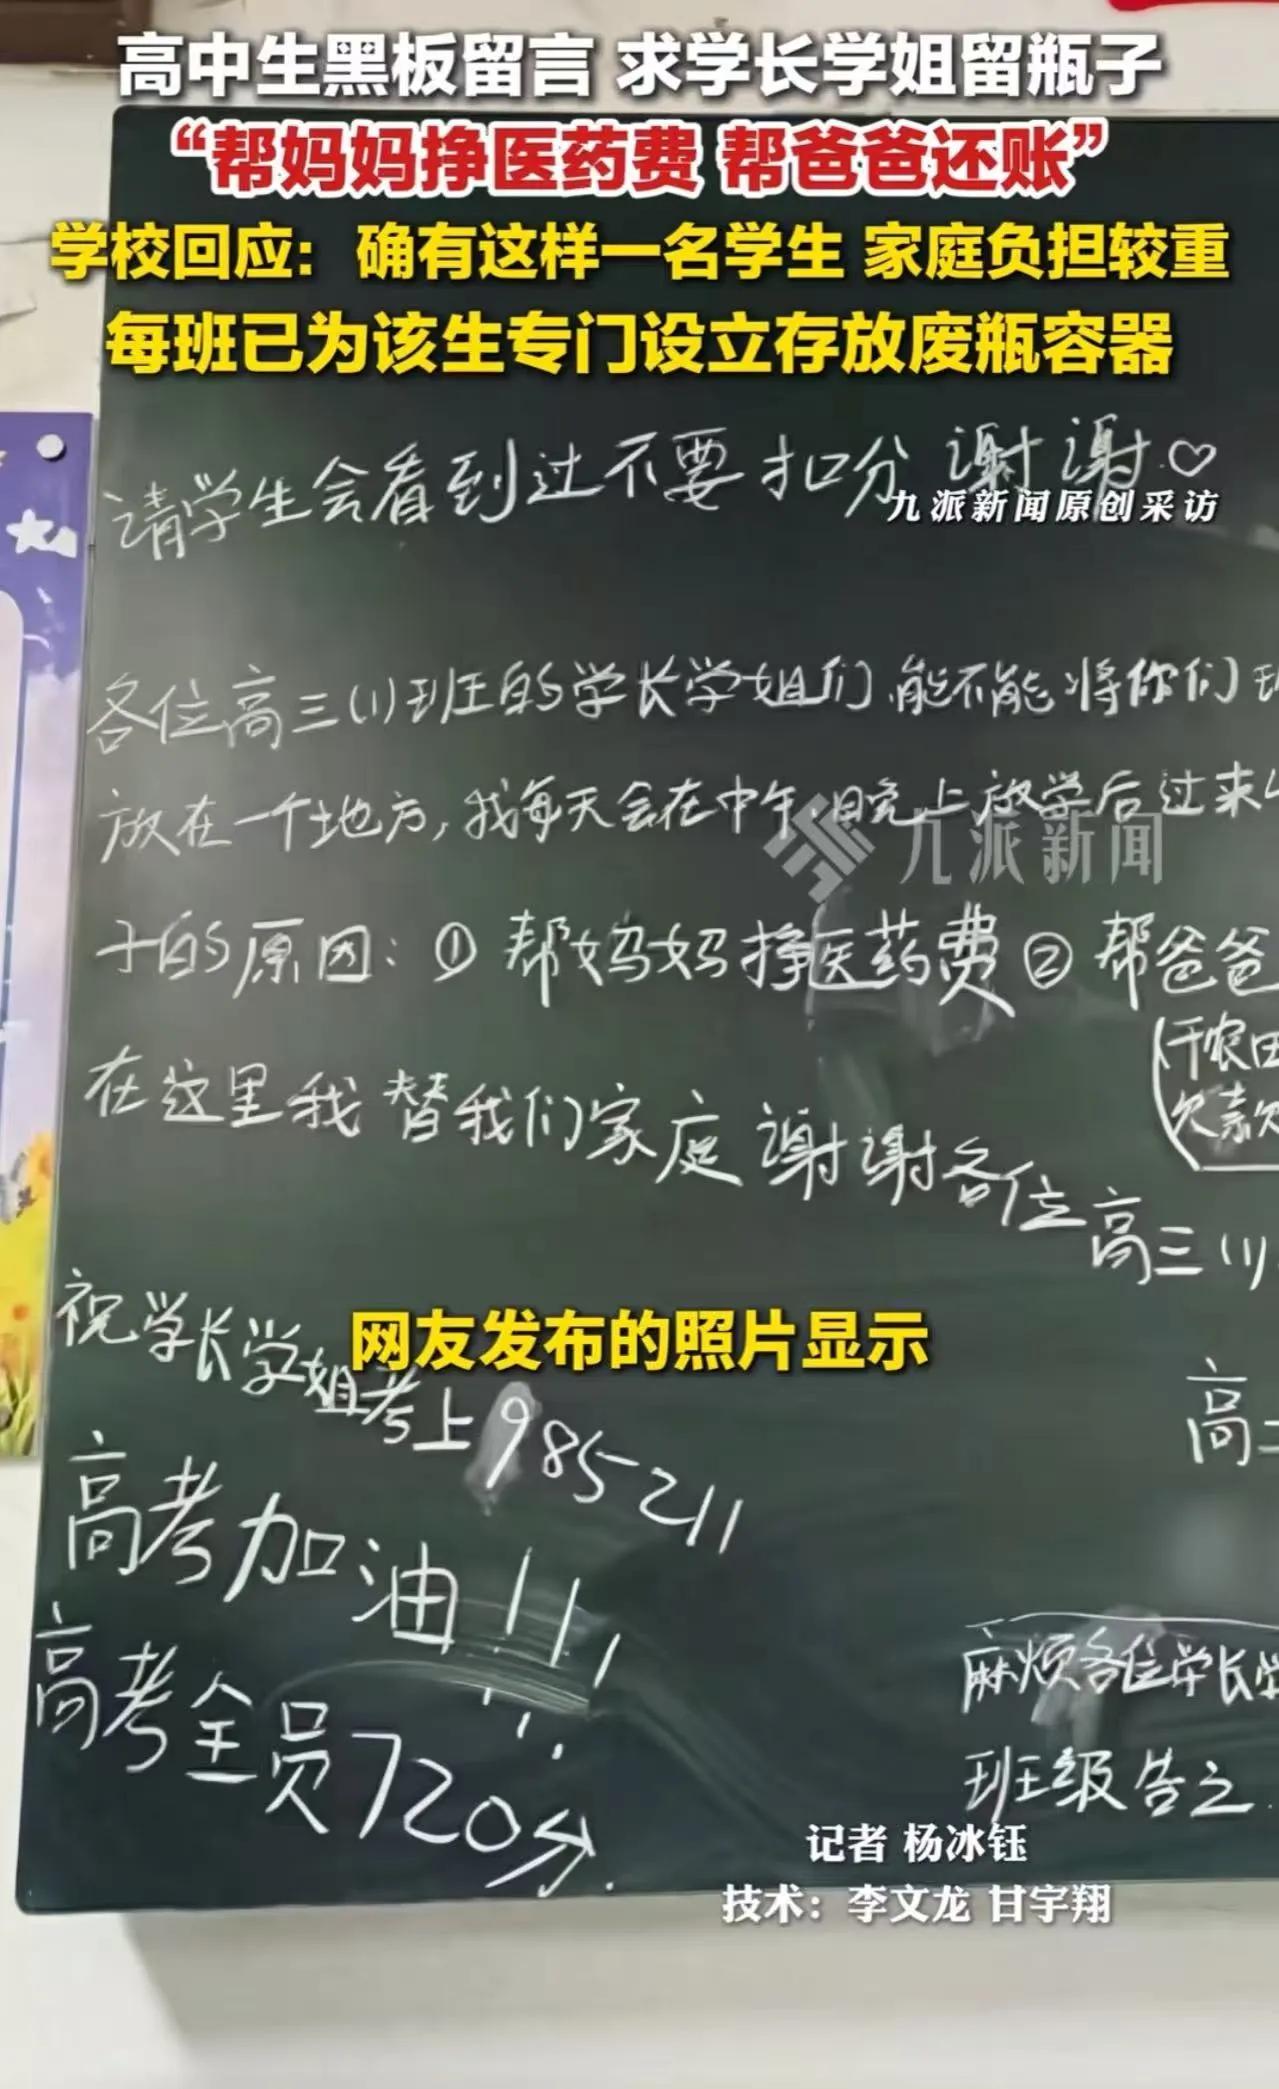 高中生黑板留言 求学长学姐留瓶子
“帮妈妈挣医药费 帮爸爸还账”
学校回应：确有这样一名学生 家庭负担较重
每班已为该生专门设立存放废瓶容器
请学生会看到过不要扣分 谢谢♡
九派新闻原创采访
各位高三(1)班的学长学姐们,能不能将你们
放在一个地方,我每天会在中午,晚上放学后过来
九派新闻
子的原因：① 帮妈妈挣医药费 ② 帮爸爸
(干农田
欠款
在这里我替我们家庭谢谢各位高三(1)
祝学长学姐考上985 211
网友发布的照片显示
高考加油!!!
高考全员720分.
麻烦各位学长
班级告之.
记者 杨冰钰
技术：李文龙 甘宇翔